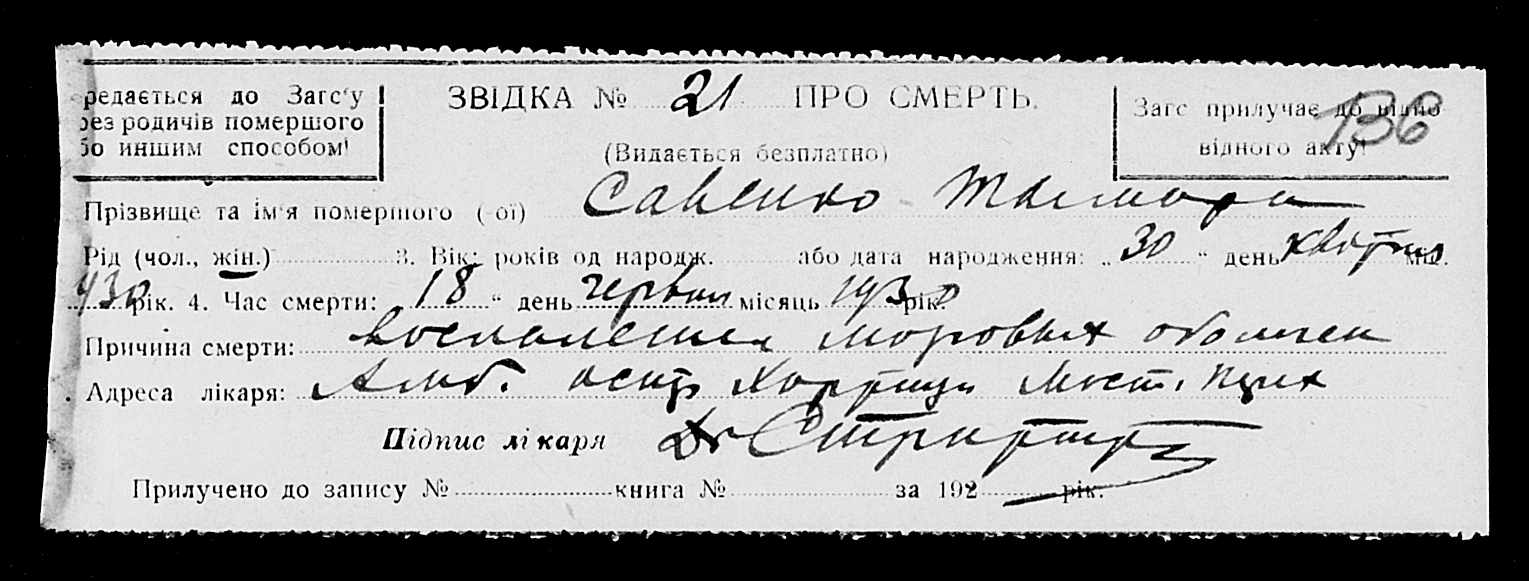 редається до Загс'у
рез родичів помершого
бо иншим способом!
ЗВІДКА № 21 ПРО СМЕРТЬ.
(Видається безплатно)
Загс прилучає до відпо
відного акту!
136
Прізвище та ім'я помершого (-ої) Савенко Тамара
Рід (чол., жін.) 3. Вік: років од народж. або дата народження: „30“ день квітня м
930 рік. 4. Час смерти: 18“ день червня місяць 1930 рік.
Причина смерти: воспаление мозговых оболочек
Адреса лікаря: Амб. остр Хортици Мост.
Підпис лікаря Dr
Прилучено до запису № книга № за 192 рік.